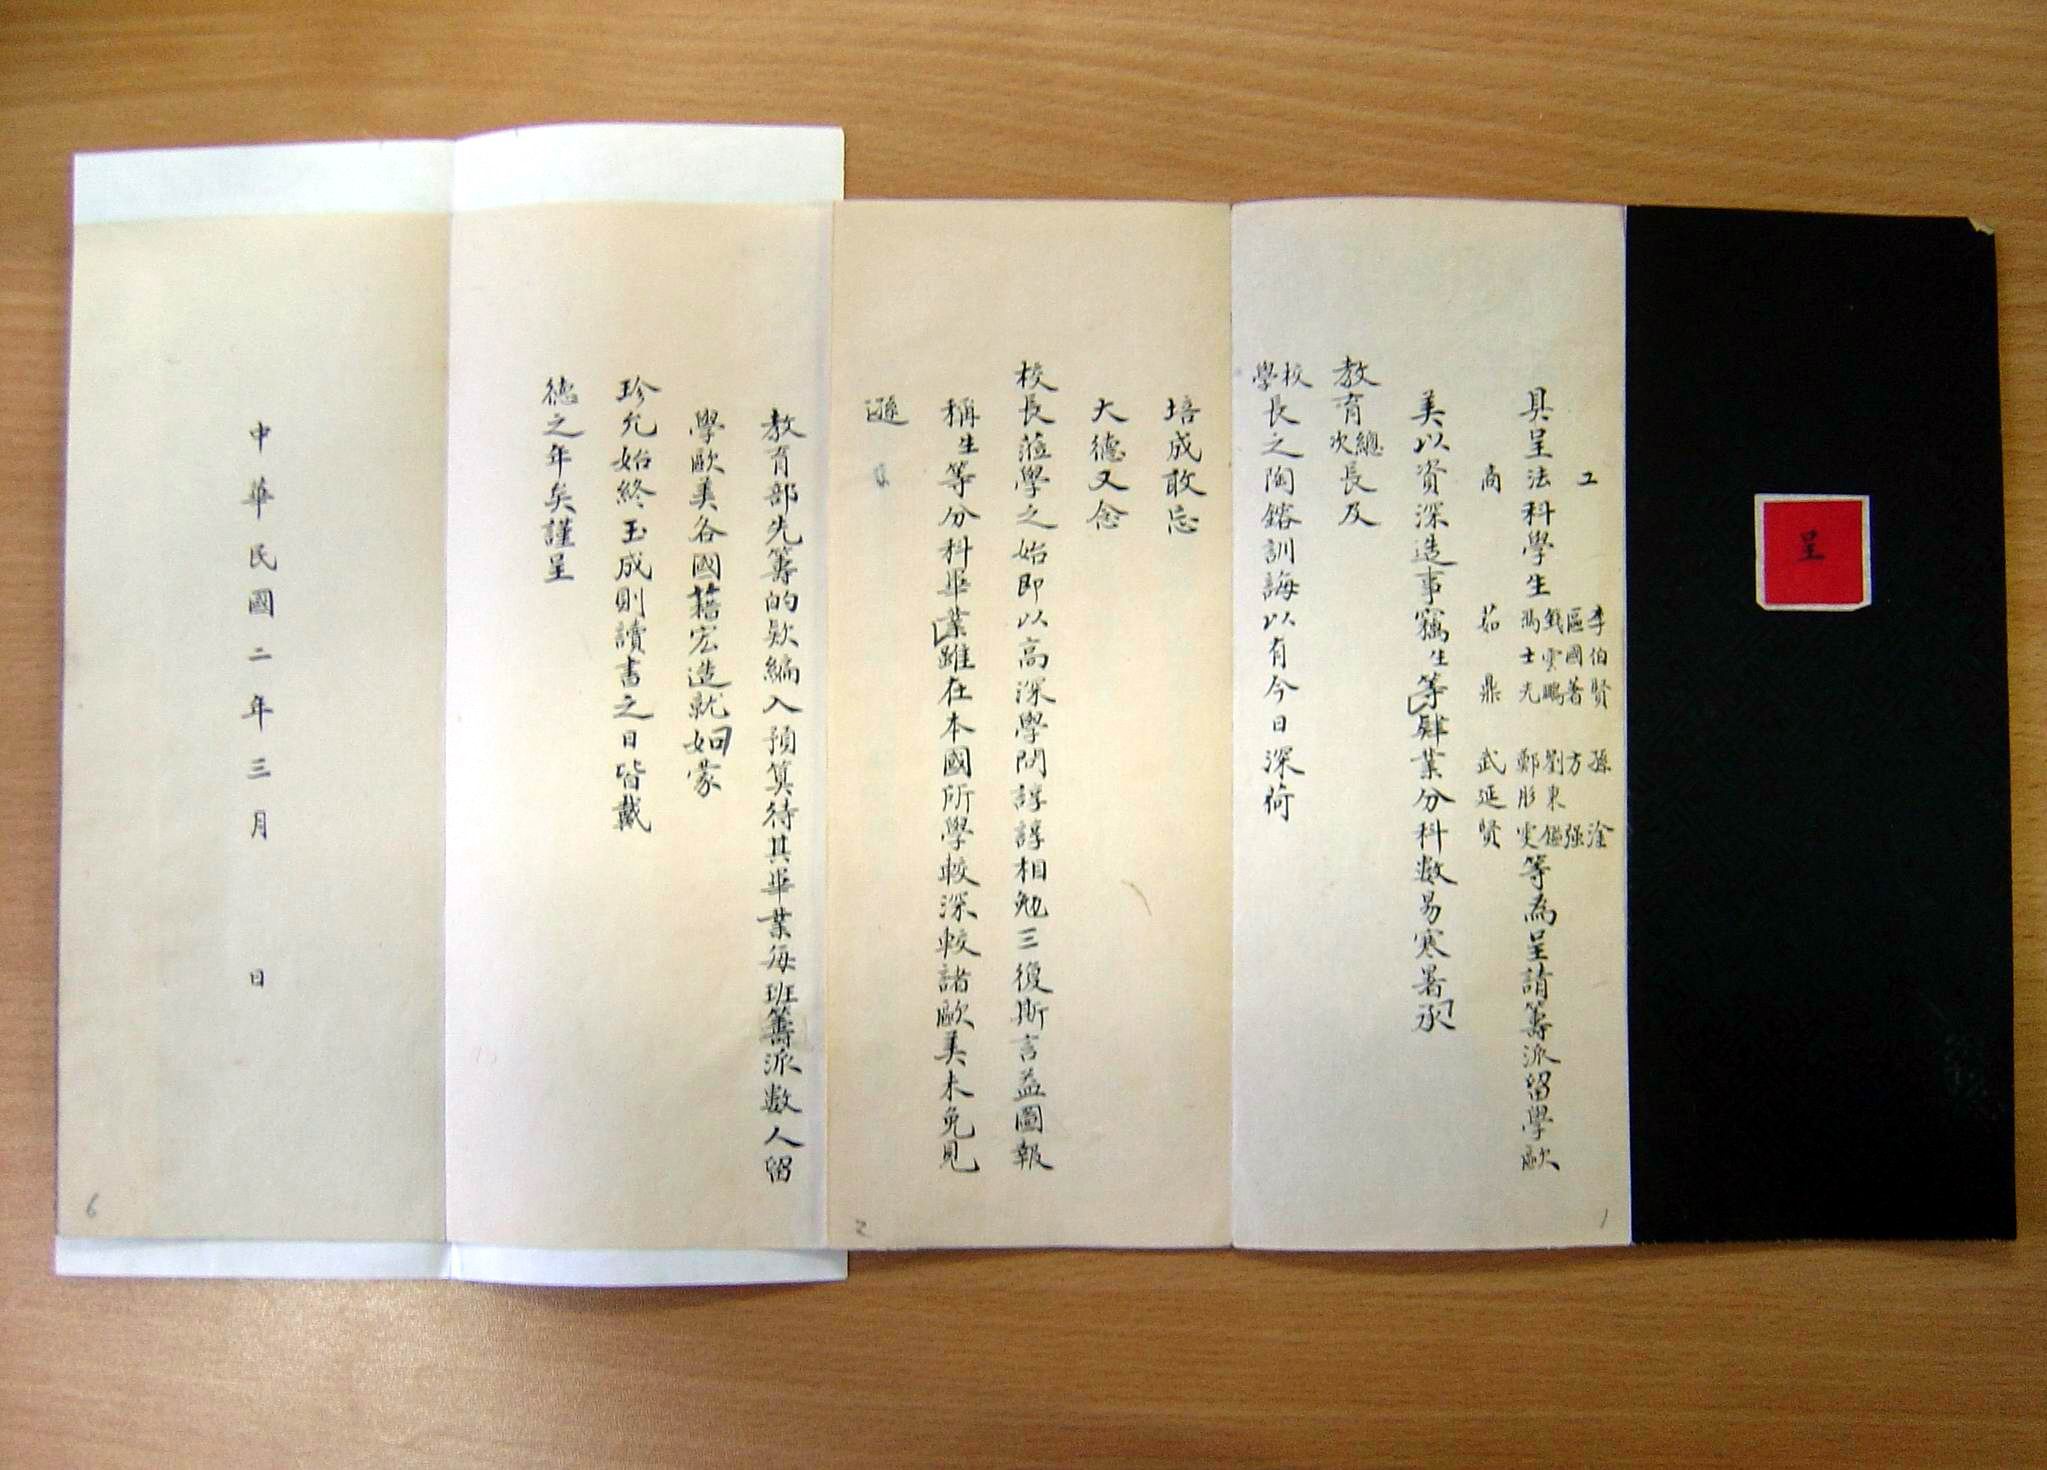 呈
工
具呈法科學生
商
李伯賢
區國著
錢雲鵬
馮士光
茹鼎
孫淦
方強
劉東
鄭彤雯
武延賢
等為呈請籌派留學歐
美以資深造事竊生等肄業分科數易寒暑承
教育總次長及
校學長之陶鎔訓誨以有今日深荷
培成敢忘
大德又念
校長蒞學之始即以高深學問諄諄相勉三復斯言益圖報
稱生等分科畢業雖在本國所學較深較諸歐美未免見
遜
教育部先籌的款編入預算待其畢業每班籌派數人留
學歐美各國藉宏造就如蒙
珍允始終玉成則讀書之日皆戴
德之年矣謹呈
中華民國二年三月　日
1
2
6